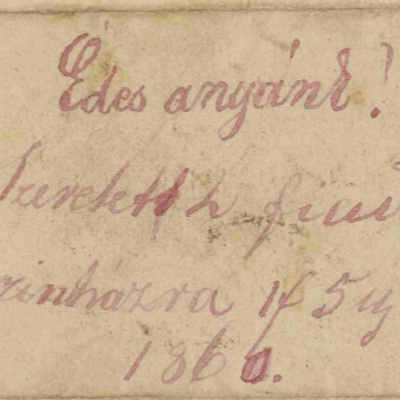 Édes anyánk!
Szeretett 2 fiai
zinházra 1f 5
1860.